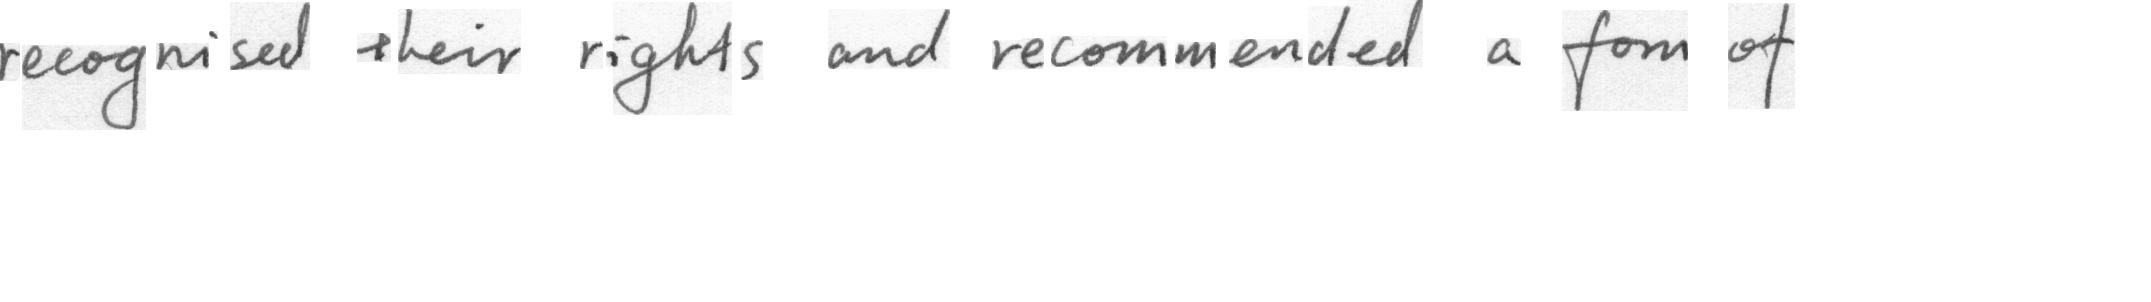 recognised their rights and recommended a form of